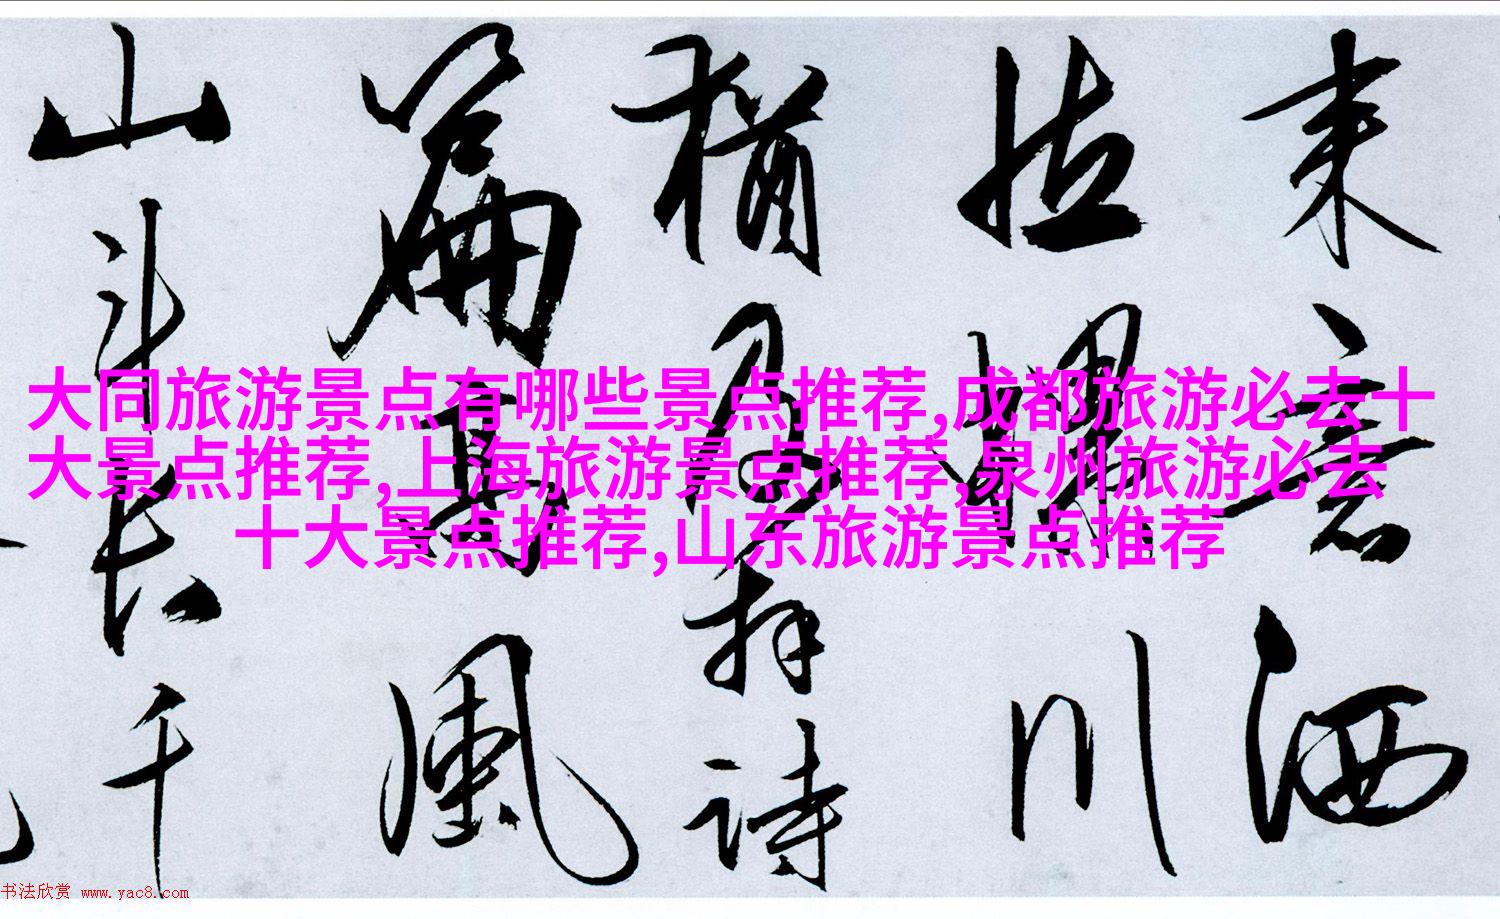 大同旅游景点有哪些景点推荐,成都旅游必去十
大景点推荐,上海旅游景点推荐,泉州旅游必去
十大景点推荐,山东旅游景点推荐
来意洒
川
猶及拜詩
篇高風
山斗長千
书法欣赏 www.yac8.com